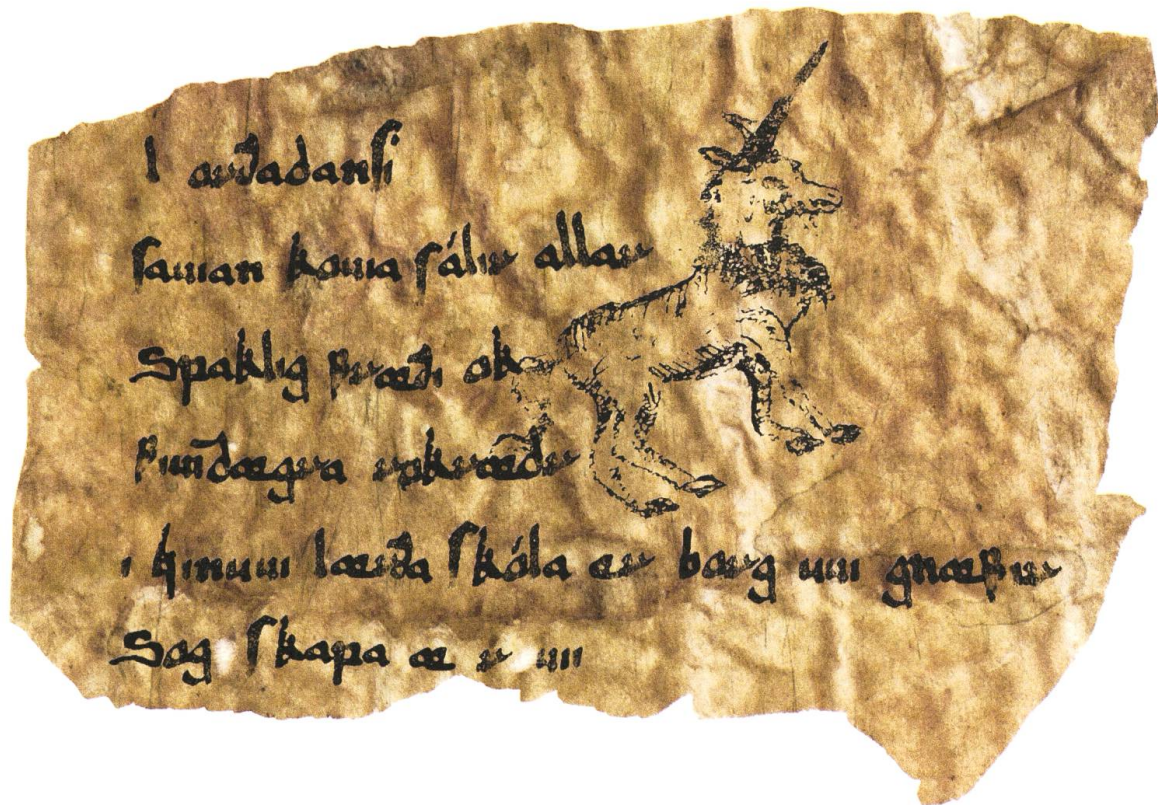 I orðadanſi
ſaman koma ſálir allar
Spaklig fræði ok
Funðægra
i hinum lærða ſkóla er borg um gnæfir
Sog ſkapa æ